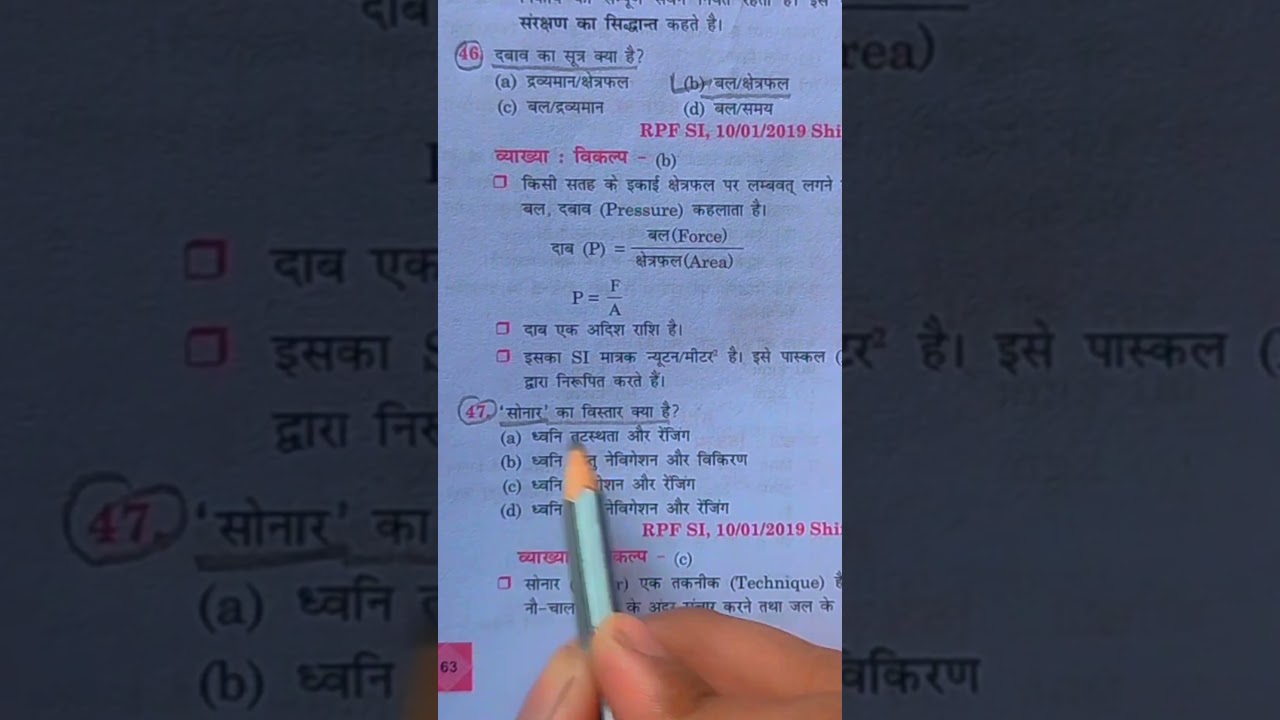 संरक्षण का सिद्धान्त कहते है।
46 दबाव का सूत्र क्या है?
(a) द्रव्यमान/क्षेत्रफल (b) बल/क्षेत्रफल
(c) बल/द्रव्यमान (d) बल/समय
RPF SI, 10/01/2019 Shi
व्याख्या : विकल्प - (b)
किसी सतह के इकाई क्षेत्रफल पर लम्बवत् लगने
बल, दबाव (Pressure) कहलाता है।
दाब (P) = बल(Force)
क्षेत्रफल(Area)
P = F
A
दाब एक अदिश राशि है।
इसका SI मात्रक न्यूटन/मीटर² है। इसे पास्कल (
द्वारा निरूपित करते हैं।
47. 'सोनार' का विस्तार क्या है?
(a) ध्वनि तटस्थता और रेंजिंग
(b) ध्वनि नेविगेशन और विकिरण
(c) ध्वनि और रेंजिंग
(d) ध्वनि नेविगेशन और रेंजिंग
RPF SI, 10/01/2019 Shi
व्याख्या - (c)
सोनार एक तकनीक (Technique)
के अंदर संचार करने तथा जल के
63